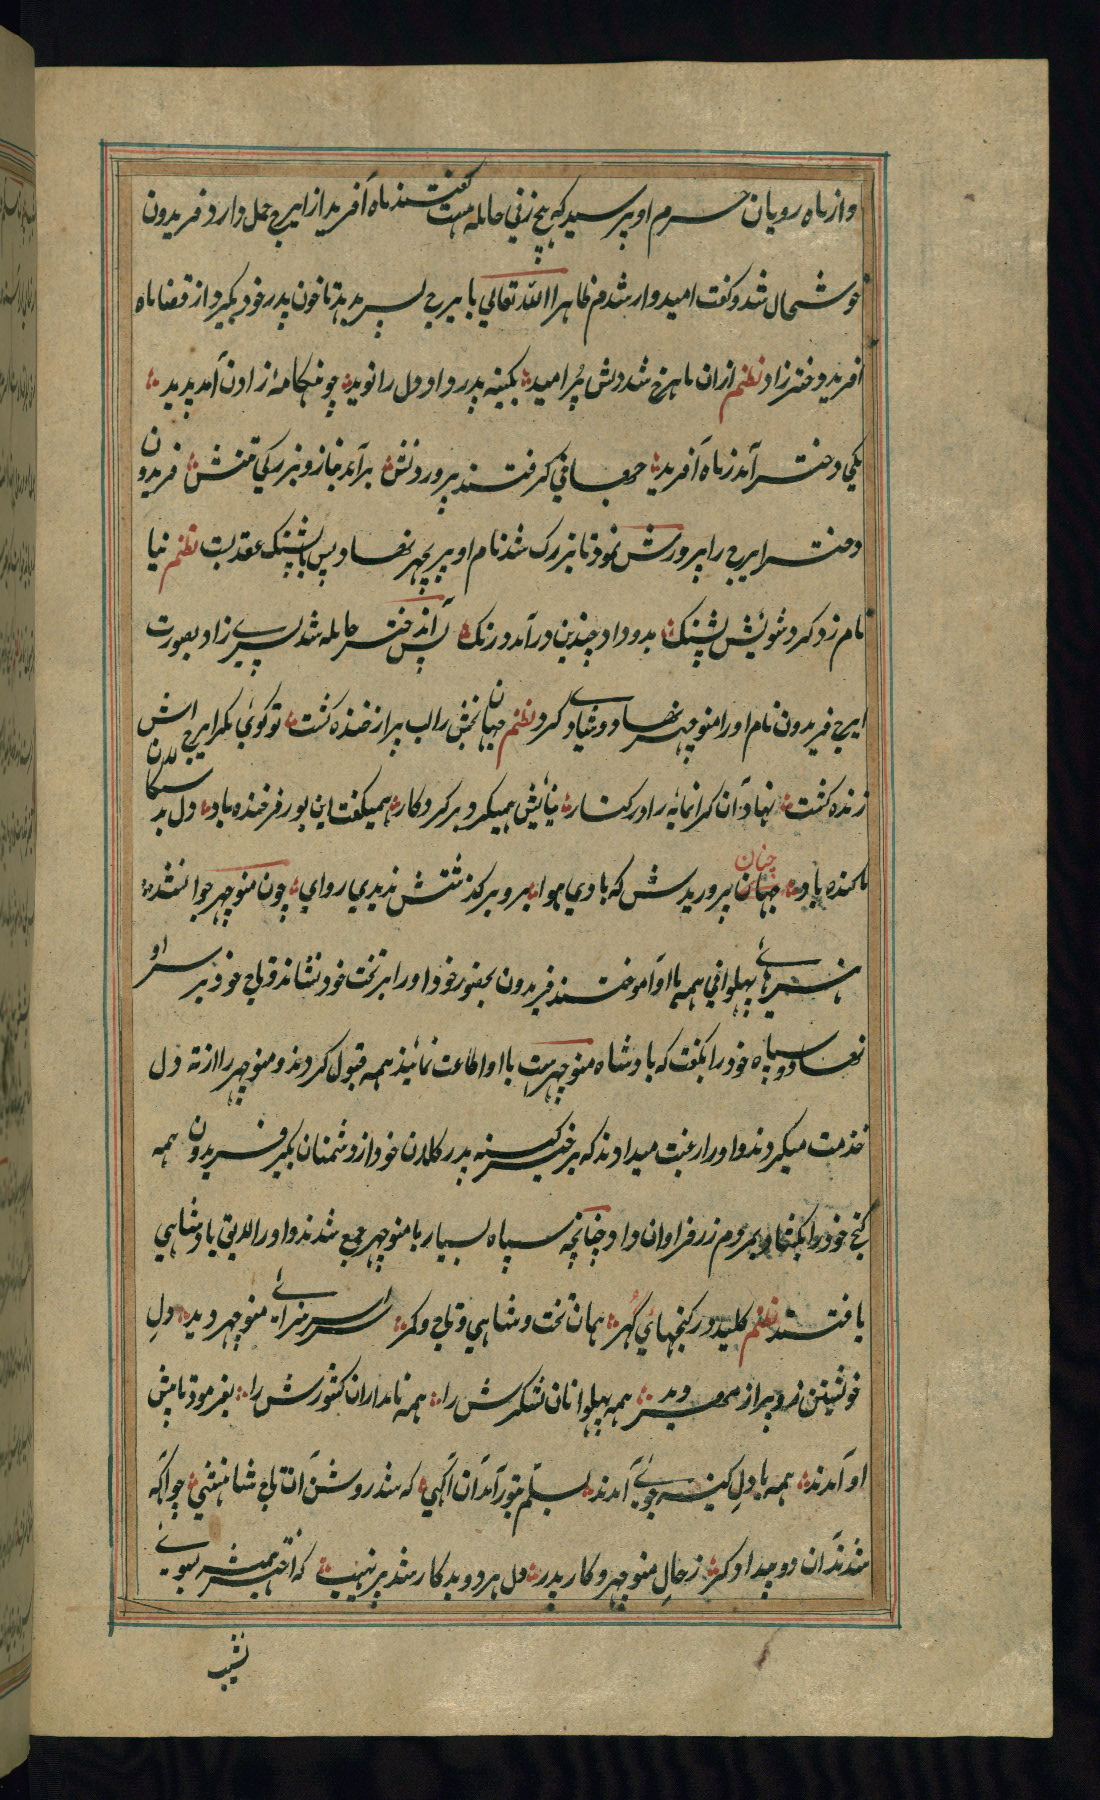 وازماه رویان حرم او پرسید که هیچ زنی حامله هست گفتند ماه آفرید از ایرج حمل دارد فریدون
خوشحال شد و گفت امیدوار شدم ظاهرا الله تعالی بایرج پسر بدهد تا خون پدر خود بگیرد از قضا ماه
افرید دختر زاد نظم ازان ماهرخ شد دلش پر امید بکینه پدر داد دل را نوید چو هنکامهٔ زادن آمد پدید
یکی دختر آمد ز ماه آفرید جهانی گرفتند پروردنش برآمد بناز و بزرکی تنش فریدون
دختر ایرج را پرورش نمود تا بزرک شد نام او پریچهر نهاد و پس با پشنک عقد بست نظم نیا
نام زد کرد شویش پشنک بدو داد و چندین درآمد درنک پس آندختر حامله شد پسری زاد بصورت
ایرج فریدون نام او را منوچهر نهاد و شادی کرد نظم جهان بخش را لب پر از خنده گشت تو گوی مگر ایرج اش
زنده گشت نهاد آن کرانمایه را در کنار نیایش همیکرد بر کردکار همیکفت این پور فرخنده باد دل بدسکالان
کنده باد چنان جهان پروریدش که بادی هوا برو بر گذشتش ندیدی روای چون منوچهر جوان شد
هنرهائے پهلوانی همه با او آموختند فریدون بحضور خود او را بر تخت خود نشاند و تاج خود بر سر او
نهاد و سپاه خود را بکفت که بادشاه منوچهرست با او اطاعت نمائید همه قبول کردند و منوچهر را از ته دل
خدمت میکردند و او را رغبت میدادند که برخیز کینه پدر کلان خود از دشمنان بکیر فریدون همه
کنج خود را بکشاد بمردم زر فراوان داد چنانچه سپاه بسیار با منوچهر جمع شدند و او را لایق بادشاهی
یافتند نظم کلید در کنجهای گهر همان تخت و شاهی و تاج و کمر سراسر سزائے منوچهر دید دل
خویشتن زو پر از مهر دید همه پهلوانان لشکرش را همه نامداران کشورش را بفرمود تا پیش
او آمدند همه با دل کینه جوئے آمدند بسلم و بتور آمد آن آکهی که شد روشن آن تاج شاهنشهی چو آکه
شدند آن دو بیدادکر ز حال منوچهر و کار پدر دل هر دو بدکار شد پر نهیب که اختر همیشد بسوئے
نشیب